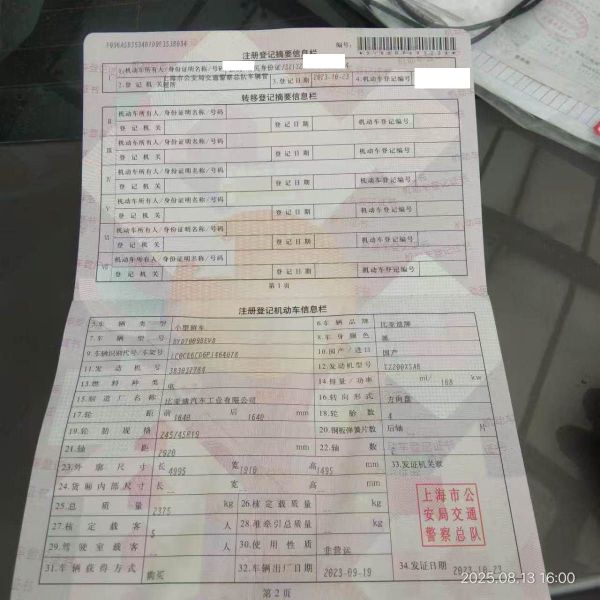 注册登记摘要信息栏
编号:
1.机动车所有人/身份证明名称/号码
2.登记机关 上海市公安局交通警察总队车辆管理所 3.登记日期 2023-10-23 4.机动车登记编号
转移登记摘要信息栏
II 机动车所有人/身份证明名称/号码
登记机关 登记日期 机动车登记编号
III 机动车所有人/身份证明名称/号码
登记机关 登记日期 机动车登记编号
IV 机动车所有人/身份证明名称/号码
登记机关 登记日期 机动车登记编号
V 机动车所有人/身份证明名称/号码
登记机关 登记日期 机动车登记编号
VI 机动车所有人/身份证明名称/号码
登记机关 登记日期 机动车登记编号
VII 机动车所有人/身份证明名称/号码
登记机关 登记日期 机动车登记编号
第1页
注册登记机动车信息栏
5.车辆类型 小型轿车 6.车辆品牌 比亚迪牌
7.车辆型号 8.车身颜色
9.车辆识别代号/车架号 10.国产/进口 国产
11.发动机号 12.发动机型号 TZ200XSAB
13.燃料种类 电 14.排量/功率 ml/ 168 kw
15.制造厂名称 比亚迪汽车工业有限公司 16.转向形式 方向盘
17.轮距 前 1640 后 1640 mm 18.轮胎数 4
19.轮胎规格 245/45R19 20.钢板弹簧片数 后轴 片
21.轴距 2920 mm 22.轴数 2
23.外廓尺寸 长 4995 宽 1910 高 1495 mm 33.发证机关章
24.货厢内部尺寸 长 宽 高 mm
25.总质量 2375 kg 26.核定载质量 kg
27.核定载客 5 人 28.准牵引总质量 kg
29.驾驶室载客 人 30.使用性质 非营运
31.车辆获得方式 购买 32.车辆出厂日期 2023-09-19 34.发证日期 2023-10-23
上海市公
安局交通
警察总队
第2页
2025.08.13 16:00